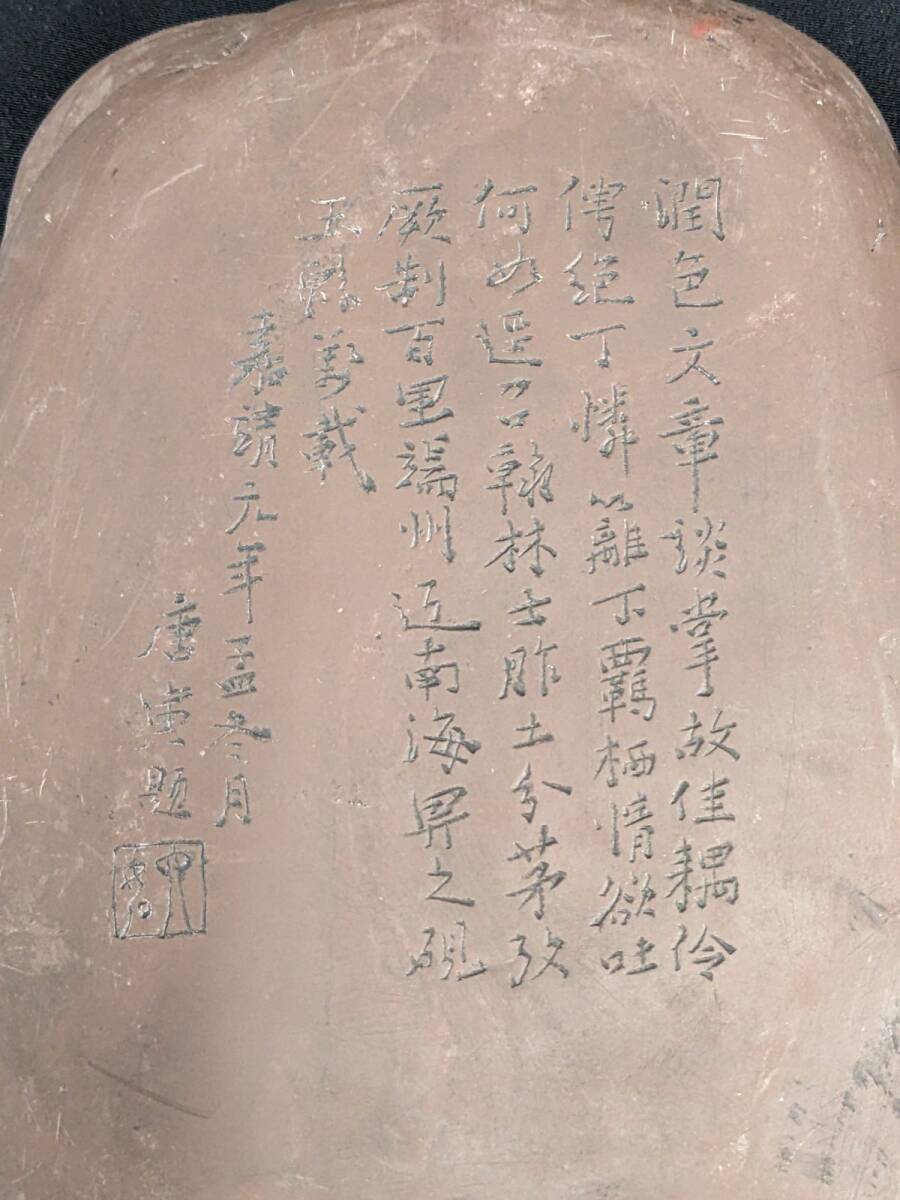 潤色文章談掌故佳耦伶
俜絕丁憐籬下羈栖情欲吐
何如還召翰林士胙土分茅攷
厥制百里端州近南海畀之硯
玉縣萬載
嘉靖元年孟冬月
唐寅題